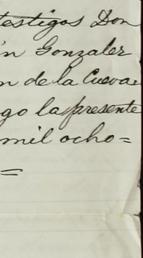 testigos Don
ín Gonzalez
n de la Cueva
go la presente
mil ocho=
=